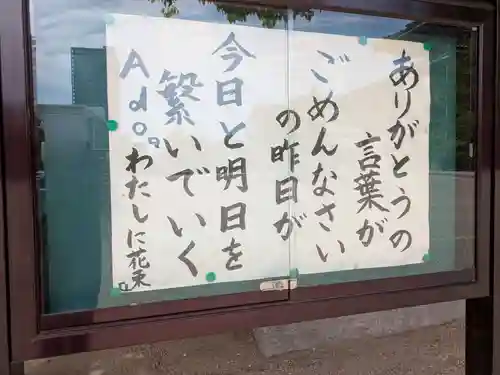 ありがとうの
言葉が
ごめんなさい
の昨日が
今日と明日を
繋いでいく
Ado。わたしに花束